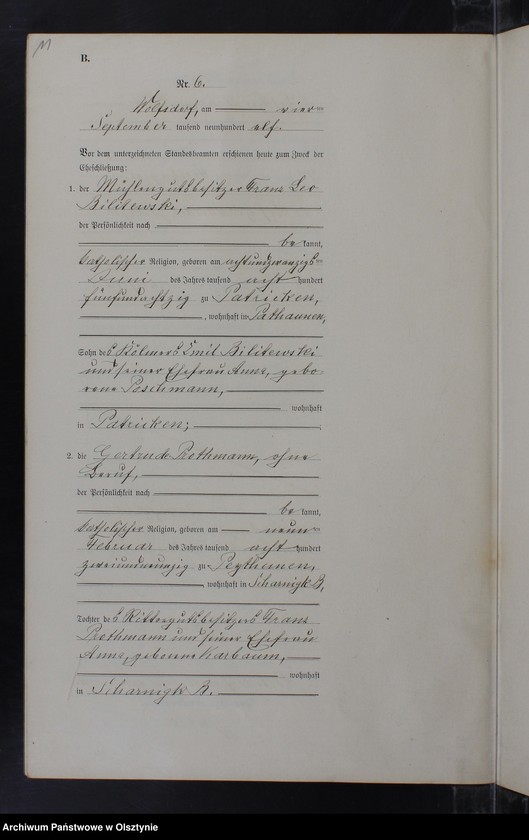 11
B.
Nr. 6.
Wolfsdorf, am vierten
September tausend neunhundert elf.
Vor dem unterzeichneten Standesbeamten erschienen heute zum Zweck der
Eheschließung:
1. der Mühlengutsbesitzer Franz Leo
Bilitewski,
der Persönlichkeit nach
be kannt,
katholischer Religion, geboren am achtundzwanzigsten
Juni des Jahres tausend acht hundert
fünfundachtzig zu Patricken,
, wohnhaft in Pathaunen,
Sohn des Kölmers Emil Bilitewski
und seiner Ehefrau Anna, gebo-
rene Poschmann,
wohnhaft
in Patricken;
2. die Gertrude Prothmann, ohne
Beruf,
der Persönlichkeit nach
be kannt,
katholischer Religion, geboren am neunten
Februar des Jahres tausend acht hundert
zweiundneunzig zu
, wohnhaft in Scharnigk B,
Tochter des Rittergutsbesitzers Franz
Prothmann und seiner Ehefrau
Anna, geborene Karbaum,
wohnhaft
in Scharnigk B.
Archiwum Państwowe w Olsztynie